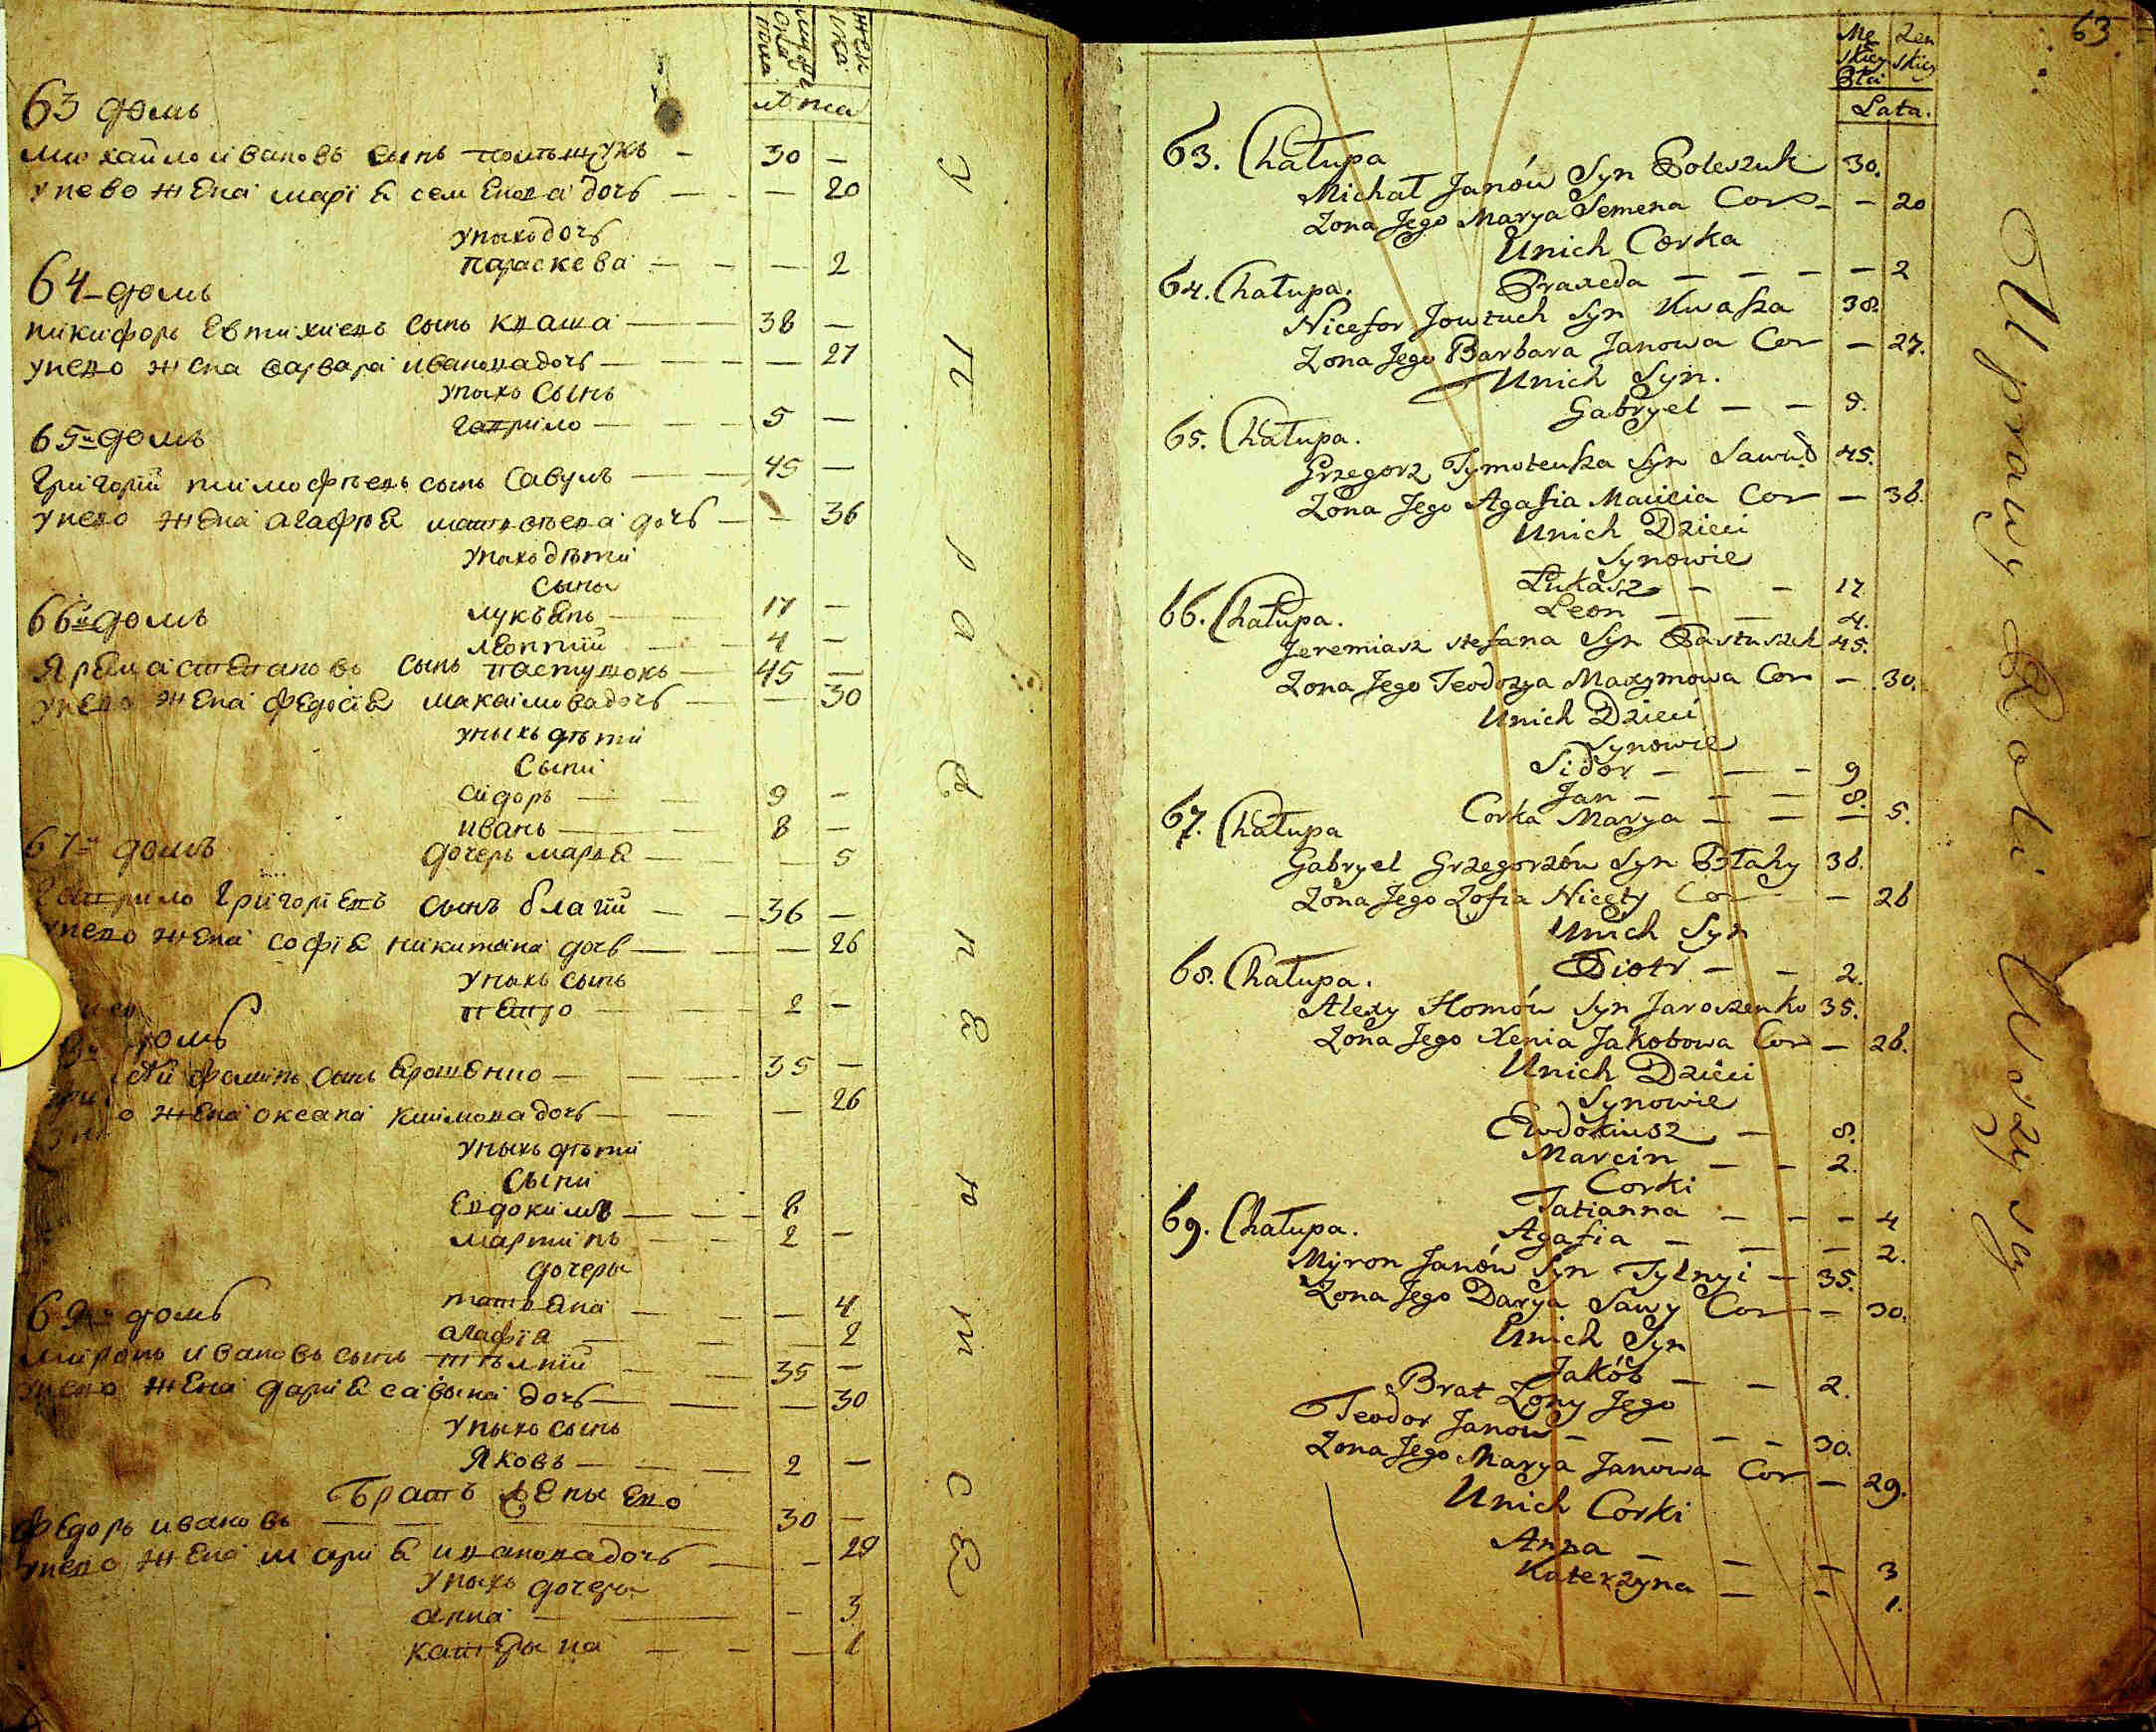 мужеска пола
женска
лѣта
63 домъ
михайло ивановъ сынъ полѣщукъ — 30 —
унево жена марія семенова дочь — — — 20
уныхъ дочь
параскева — — — 2
64 домъ
никифоръ Евтихиевъ сынъ кваша — — 38 —
унево жена варвара иванова дочь — — — — 27
уныхъ сынъ
гаврило — — — 5 —
65й домъ
Григорий тимофѣевъ сынъ Савулъ — — 45 —
унево жена агафія матвѣева дочь — — 36
уныхъ дѣти
сыны
лукъянъ — — 17 —
66й домъ
леонтий — — 4 —
Ярема стефановъ сынъ пастушокъ — 45 —
унево жена федосія максимова дочь — — 30
уныхъ дѣти
сыни
сидоръ — — 9 —
иванъ — — 8 —
67й домъ
дочерь марія — — — 5
гаврило Григориевъ сынъ благий — — 36 —
унево жена софія никитина дочь — — — 26
уныхъ сынъ
петро — — — 2 —
домъ
фоминъ сынъ Ярошенко — — — 35 —
жена оксана климова дочь — — — 26
уныхъ дѣти
сыни
Евдокимъ — — — 8
мартинъ — — 2 —
дочеры
татіяна — — — 4
69й домъ
агафія — — — 2
миронъ ивановъ сынъ тѣлний — — 35 —
унево жена дарія савына дочь — — — 30
уныхъ сынъ
Яковъ — — — 2 —
Братъ жены Ево
федоръ ивановъ — — — 30 —
унево жена марія иванова дочь — — 29
уныхъ дочеры
анна — — — 3
катерына — — — 1
управѣнютсе
63.
Męskiey Płci
Zenskiey
Lata.
63. Chałupa
Michał Janów Syn Poleszuk 30.
Zona Jego Marya Semena Cor — — 20
Unich Corka
Praxeda — — — — 2
64. Chałupa.
Nicefor Jowtuch Syn Kwasza 38.
Zona Jego Barbara Janowa Cor — 27.
Unich Syn.
Gabryel — — 5.
65. Chałupa.
Grzegorz Tymoteusza Syn Sawuł 45.
Zona Jego Agafia Macieia Cor — 36.
Unich Dzieci
Synowie
Łukasz — — 17
Leon — — 4.
66. Chałupa.
Jeremiasz Stefana Syn Pastuszek 45.
Zona Jego Teodozya Maxymowa Cor — 30.
Unich Dzieci
Synowie
Sidor — — — 9
Jan — — — 8.
Corka Marya — — — 5.
67. Chałupa
Gabryel Grzegorzów Syn Błahy 36.
Zona Jego Zofia Nicety Cor — 26
Unich Syn
Piotr — — 2.
68. Chałupa.
Alexy Homów Syn Jaroszenko 35.
Zona Jego Xenia Jakobowa Cor — 26.
Unich Dzieci
Synowie
Ewdokiusz — 8.
Marcin — — 2.
Corki
Tatianna — — — 4
Agafia — — — 2.
69. Chałupa.
Myron Janów Syn Tylnyi — 35.
Zona Jego Darya Sawy Cor — 30.
Unich Syn
Jakób — — 2.
Brat Zony Jego
Teodor Janow — — — — 30.
Zona Jego Marya Janowa Cor — 29.
Unich Corki
Anna — — — 3
Katerzyna — — 1.
Uprawy Roli Worzysey